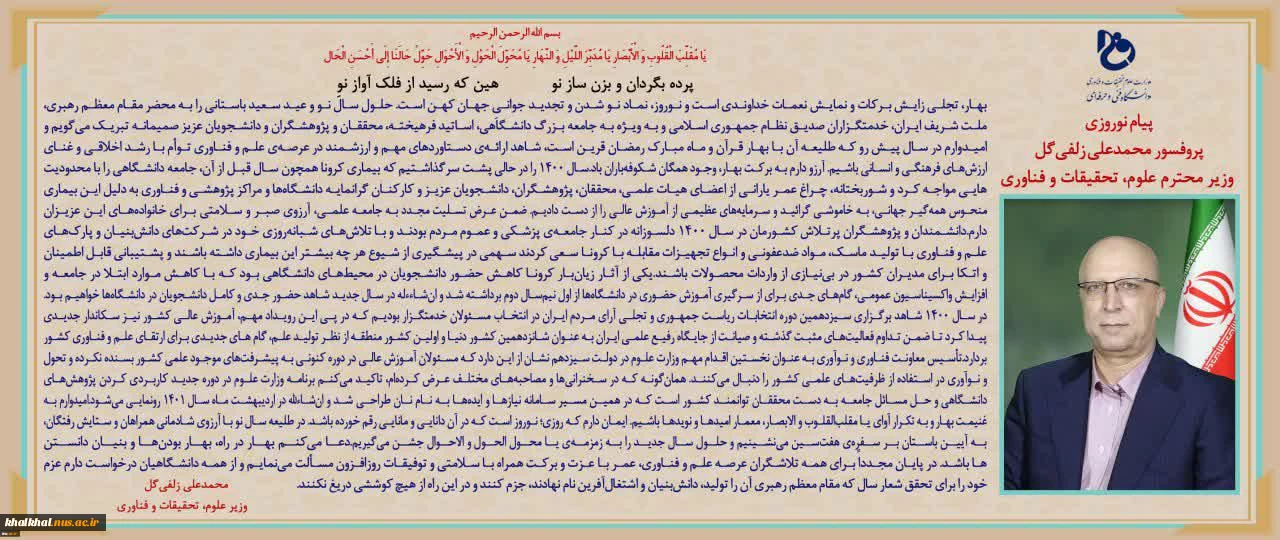 بسم الله الرحمن الرحیم
یَا مُقَلِّبَ الْقُلُوبِ وَ الْأَبْصَارِ یَا مُدَبِّرَ اللَّیْلِ وَ النَّهَارِ یَا مُحَوِّلَ الْحَوْلِ وَ الْأَحْوَالِ حَوِّلْ حَالَنَا إِلَى أَحْسَنِ الْحَالِ
پرده بگردان و بزن ساز نو هین که رسید از فلک آواز نو
بهار، تجلی زایش برکات و نمایش نعمات خداوندی است و نوروز، نماد نو شدن و تجدید جوانی جهان کهن است. حلول سال نو و عید سعید باستانی را به محضر مقام معظم رهبری،
ملت شریف ایران، خدمتگزاران صدیق نظام جمهوری اسلامی و به ویژه به جامعه بزرگ دانشگاهی، اساتید فرهیخته، محققان و پژوهشگران و دانشجویان عزیز صمیمانه تبریک می‌گویم و
امیدوارم در سال پیش رو که طلیعه آن با بهار قرآن و ماه مبارک رمضان قرین است، شاهد ارائه‌ی دستاوردهای مهم و ارزشمند در عرصه‌ی علم و فناوری توأم با رشد اخلاقی و غنای
ارزش‌های فرهنگی و انسانی باشیم. آرزو دارم به برکت بهار، وجود همگان شکوفه‌باران باد.سال ۱۴۰۰ را در حالی پشت سر گذاشتیم که بیماری کرونا همچون سال قبل از آن، جامعه دانشگاهی را با محدودیت
هایی مواجه کرد و شوربختانه، چراغ عمر یارانی از اعضای هیات علمی، محققان، پژوهشگران، دانشجویان عزیز و کارکنان گرانمایه دانشگاه‌ها و مراکز پژوهشی و فناوری به دلیل این بیماری
منحوس همه‌گیر جهانی، به خاموشی گرائید و سرمایه‌های عظیمی از آموزش عالی را از دست دادیم. ضمن عرض تسلیت مجدد به جامعه علمی، آرزوی صبر و سلامتی برای خانواده‌های این عزیزان
دارم.دانشمندان و پژوهشگران پرتلاش کشورمان در سال ۱۴۰۰ دلسوزانه در کنار جامعه‌ی پزشکی و عموم مردم بودند و با تلاش‌های شبانه‌روزی خود در شرکت‌های دانش‌بنیان و پارک‌های
علم و فناوری با تولید ماسک، مواد ضدعفونی و انواع تجهیزات مقابله با کرونا سعی کردند سهمی در پیشگیری از شیوع هر چه بیشتر این بیماری داشته باشند و پشتیبانی قابل اطمینان
و اتکا برای مدیران کشور در بی‌نیازی از واردات محصولات باشند.یکی از آثار زیان‌بار کرونا کاهش حضور دانشجویان در محیط‌های دانشگاهی بود که با کاهش موارد ابتلا در جامعه و
افزایش واکسیناسیون عمومی، گام‌های جدی برای از سرگیری آموزش حضوری در دانشگاه‌ها از اول نیم‌سال دوم برداشته شد و ان‌شاءله در سال جدید شاهد حضور جدی و کامل دانشجویان در دانشگاه‌ها خواهیم بود.
در سال ۱۴۰۰ شاهد برگزاری سیزدهمین دوره انتخابات ریاست جمهوری و تجلی آرای مردم ایران در انتخاب مسئولان خدمتگزار بودیم که در پی این رویداد مهم، آموزش عالی کشور نیز سکاندار جدیدی
پیدا کرد تا ضمن تداوم فعالیت‌های مثبت گذشته و صیانت از جایگاه رفیع علمی ایران به عنوان شانزدهمین کشور دنیا و اولین کشور منطقه از نظر تولید علم، گام های جدیدی برای ارتقای علم و فناوری کشور
بردارد.تأسیس معاونت فناوری و نوآوری به عنوان نخستین اقدام مهم وزارت علوم در دولت سیزدهم نشان از این دارد که مسئولان آموزش عالی در دوره کنونی به پیشرفت‌های موجود علمی کشور بسنده نکرده و تحول
و نوآوری در استفاده از ظرفیت‌های علمی کشور را دنبال می‌کنند. همان‌گونه که در سخنرانی‌ها و مصاحبه‌های مختلف عرض کرده‌ام، تاکید می‌کنم برنامه وزارت علوم در دوره جدید کاربردی کردن پژوهش‌های
دانشگاهی و حل مسائل جامعه به دست محققان توانمند کشور است که در همین مسیر سامانه نیازها و ایده‌ها به نام نان طراحی شد و ان‌شاءله در اردیبهشت ماه سال ۱۴۰۱ رونمایی می‌شود.امیدوارم به
غنیمت بهار و به تکرار آوای یا مقلب‌القلوب و الابصار، معمار امیدها و نویدها باشیم. ایمان دارم که روزی؛ نوروز است که در آن دانایی و مانایی رقم خورده باشد. در طلیعه سال نو با آرزوی شادمانی همراهان و ستایش رفتگان،
به آیین باستان بر سفره‌ی هفت‌سین می‌نشینیم و حلول سال جدید را به زمزمه‌ی یا محول الحول و الاحوال جشن می‌گیریم.دعا می‌کنم بهار در راه، بهار بودن‌ها و بنیان دانستن
ها باشد. در پایان مجدداً برای همه تلاشگران عرصه علم و فناوری، عمر با عزت و برکت همراه با سلامتی و توفیقات روزافزون مسألت می‌نمایم و از همه دانشگاهیان درخواست دارم عزم
خود را برای تحقق شعار سال که مقام معظم رهبری آن را تولید، دانش‌بنیان و اشتغال‌آفرین نام نهادند، جزم کنند و در این راه از هیچ کوششی دریغ نکنند.
محمدعلی زلفی‌گل
وزیر علوم، تحقیقات و فناوری
وزارت علوم تحقیقات و فناوری
دانشگاه فنی و حرفه‌ای
پیام نوروزی
پروفسور محمدعلی زلفی‌گل
وزیر محترم علوم، تحقیقات و فناوری
khalkhal.nus.ac.ir